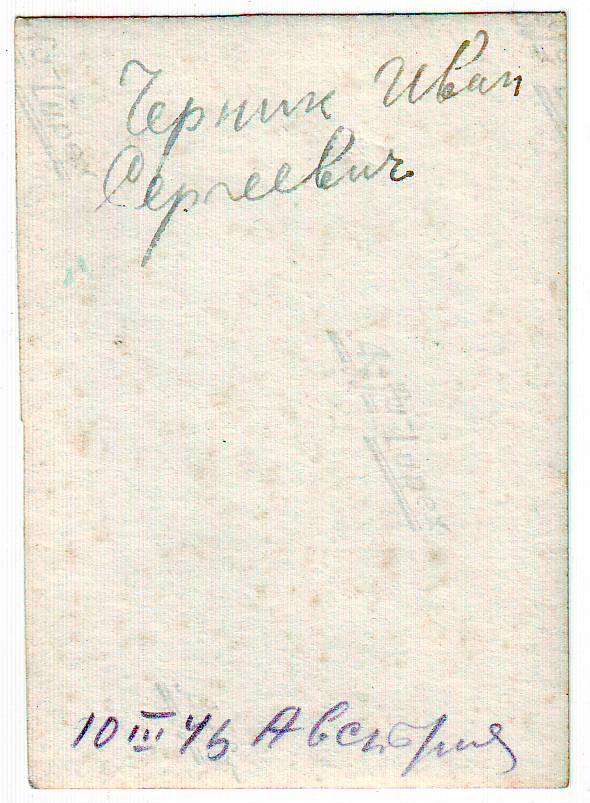 Черник Иван
Сергеевич
10 III 46 Австрия